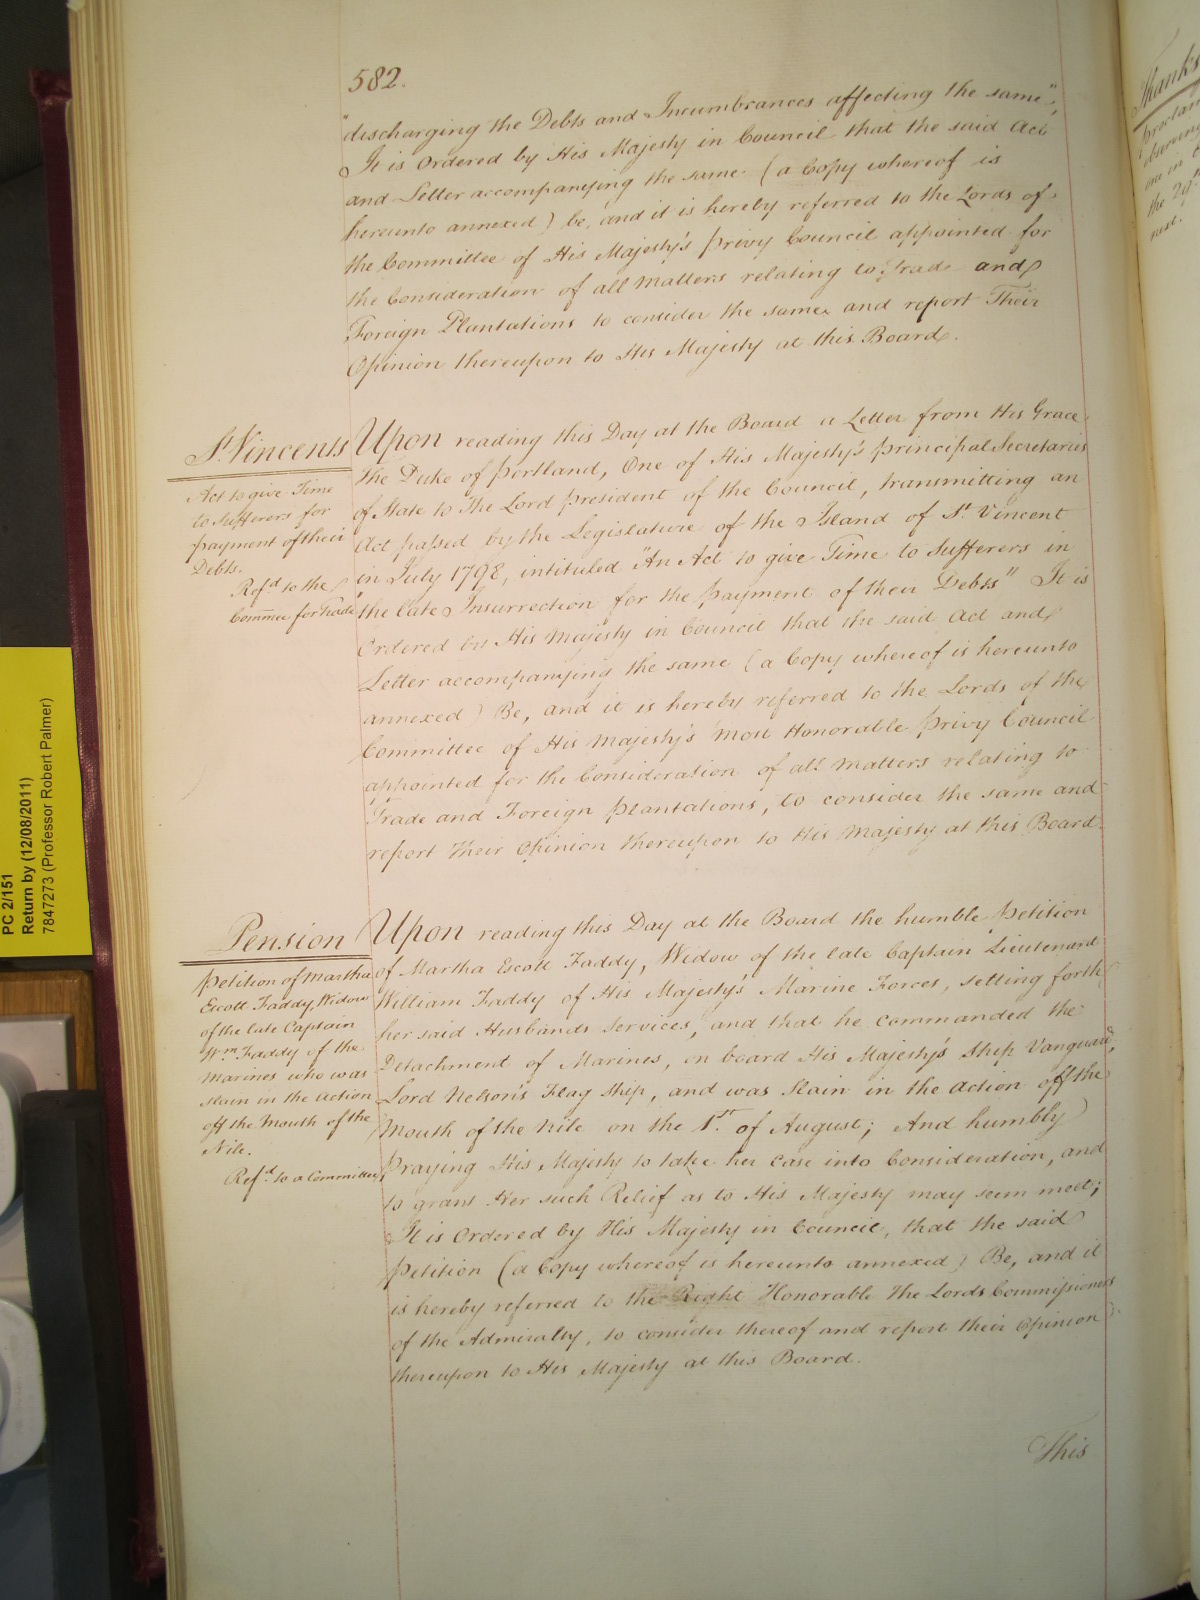 582.
"discharging the Debts and Incumbrances affecting the same",
It is Ordered by His Majesty in Council that the said Act
and Letter accompanying the same (a Copy whereof is
hereunto annexed) be, and it is hereby referred to the Lords of
the Committee of His Majesty's Privy Council appointed for
the Consideration of all Matters relating to Trade and
Foreign Plantations to consider the same and report Their
Opinion thereupon to His Majesty at this Board.
St. Vincents
Act to give Time
to Sufferers for
payment of their
Debts.
Refd. to the
Committee for Trade
Upon reading this Day at the Board a Letter from His Grace
the Duke of Portland, One of His Majesty's Principal Secretaries
of State to The Lord President of the Council, transmitting an
Act passed by the Legislature of the Island of St. Vincent
in July 1798, intituled "An Act to give Time to Sufferers in
the late Insurrection for the Payment of their Debts" It is
Ordered by His Majesty in Council that the said Act and
Letter accompanying the same (a Copy whereof is hereunto
annexed) Be, and it is hereby referred to the Lords of the
Committee of His Majesty's Most Honorable Privy Council
appointed for the Consideration of all Matters relating to
Trade and Foreign Plantations, to consider the same and
report Their Opinion thereupon to His Majesty at this Board.
Pension
Petition of Martha
Escott Faddy, Widow
of the late Captain
Wm. Faddy of the
Marines who was
slain in the Action
off the Mouth of the
Nile.
Refd. to a Committee
Upon reading this Day at the Board the humble Petition
of Martha Escott Faddy, Widow of the late Captain Lieutenant
William Faddy of His Majesty's Marine Forces, setting forth
her said Husbands Services, and that he commanded the
Detachment of Marines, on board His Majesty's Ship Vanguard,
Lord Nelson's Flag Ship, and was Slain in the Action off the
Mouth of the Nile on the 1st. of August; And humbly
Praying His Majesty to take her case into Consideration, and
to grant Her such Relief as to His Majesty may seem meet;
It is Ordered by His Majesty in Council, that the said
Petition (a Copy whereof is hereunto annexed) Be, and it
is hereby referred to the Right Honorable The Lords Commissioners
of the Admiralty, to consider thereof and report their Opinion
thereupon to His Majesty at this Board.
This
PC 2/151
Return by (12/08/2011)
7847273 (Professor Robert Palmer)
Thanks
next.